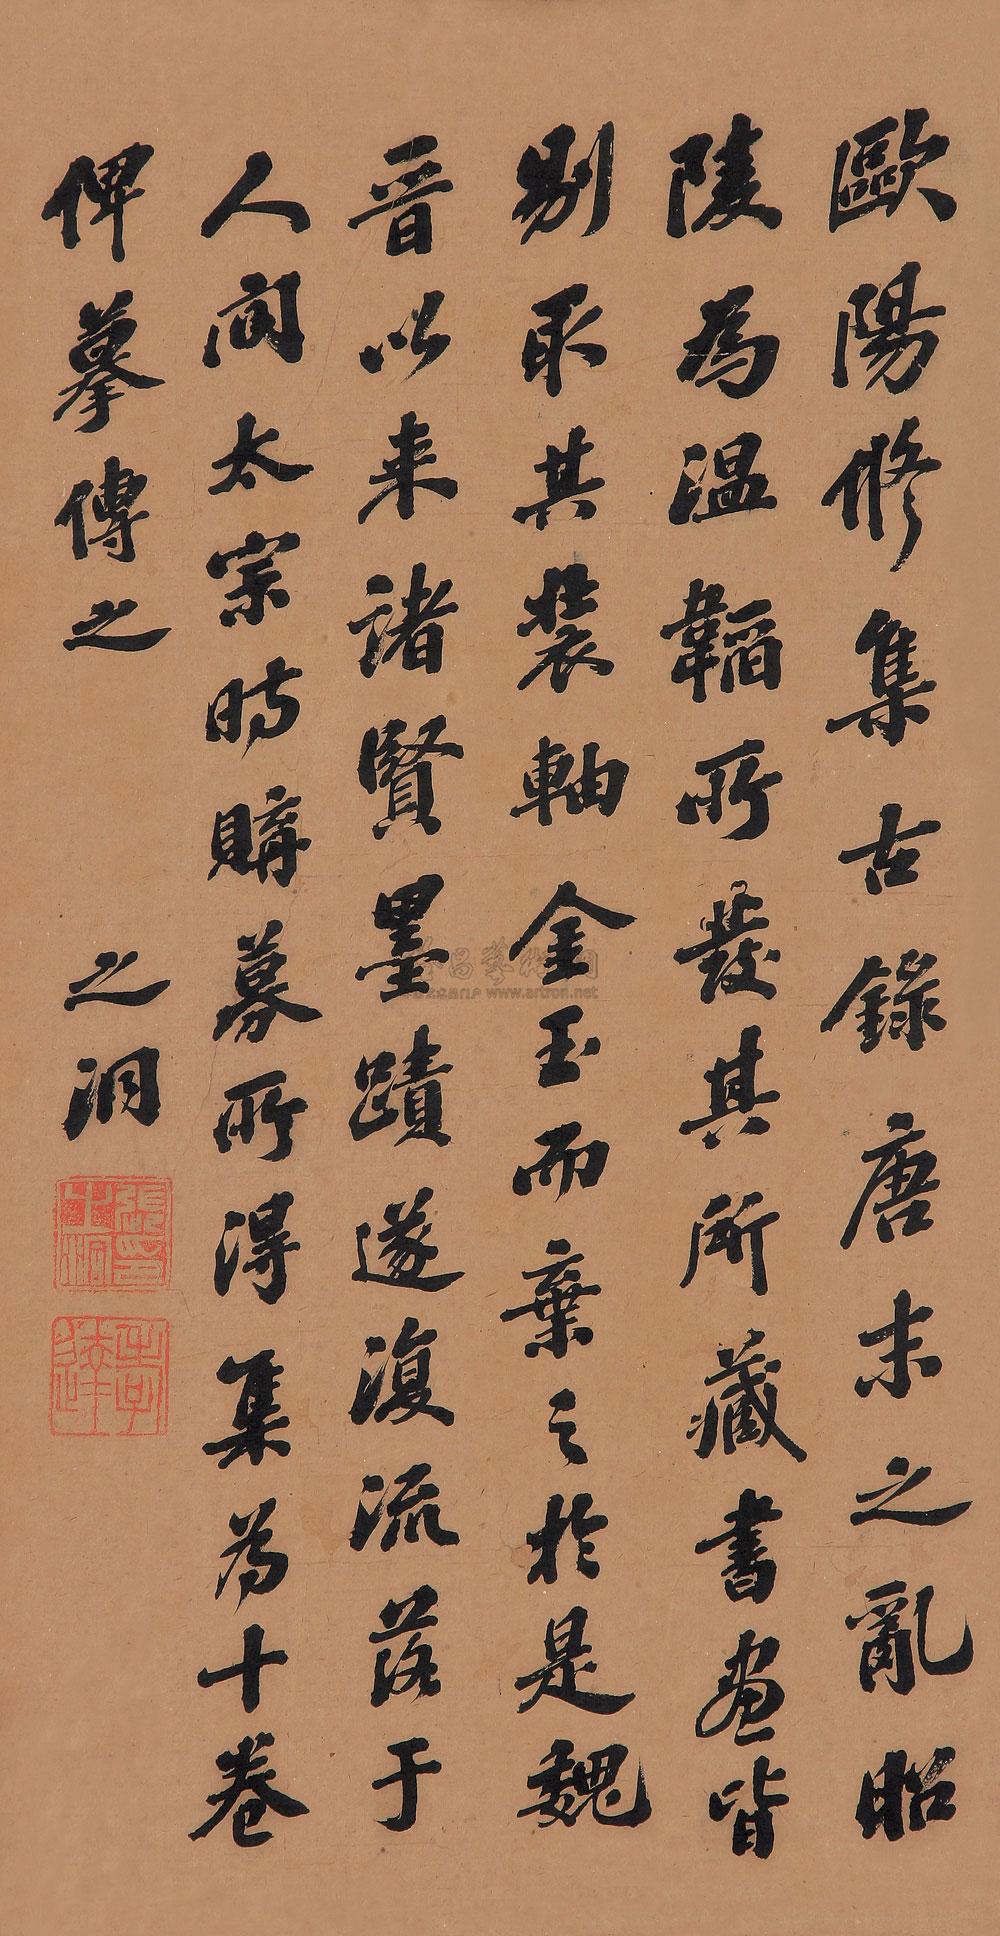 歐陽修集古錄唐末之亂昭
陵為溫韜所發其所藏書畫皆
剔取其裝軸金玉而棄之於是魏
晉以来諸賢墨蹟遂復流落于
人间太宗时購募所得集為十卷
俾摹傳之
之洞
張之洞印
孝達
www.artron.net